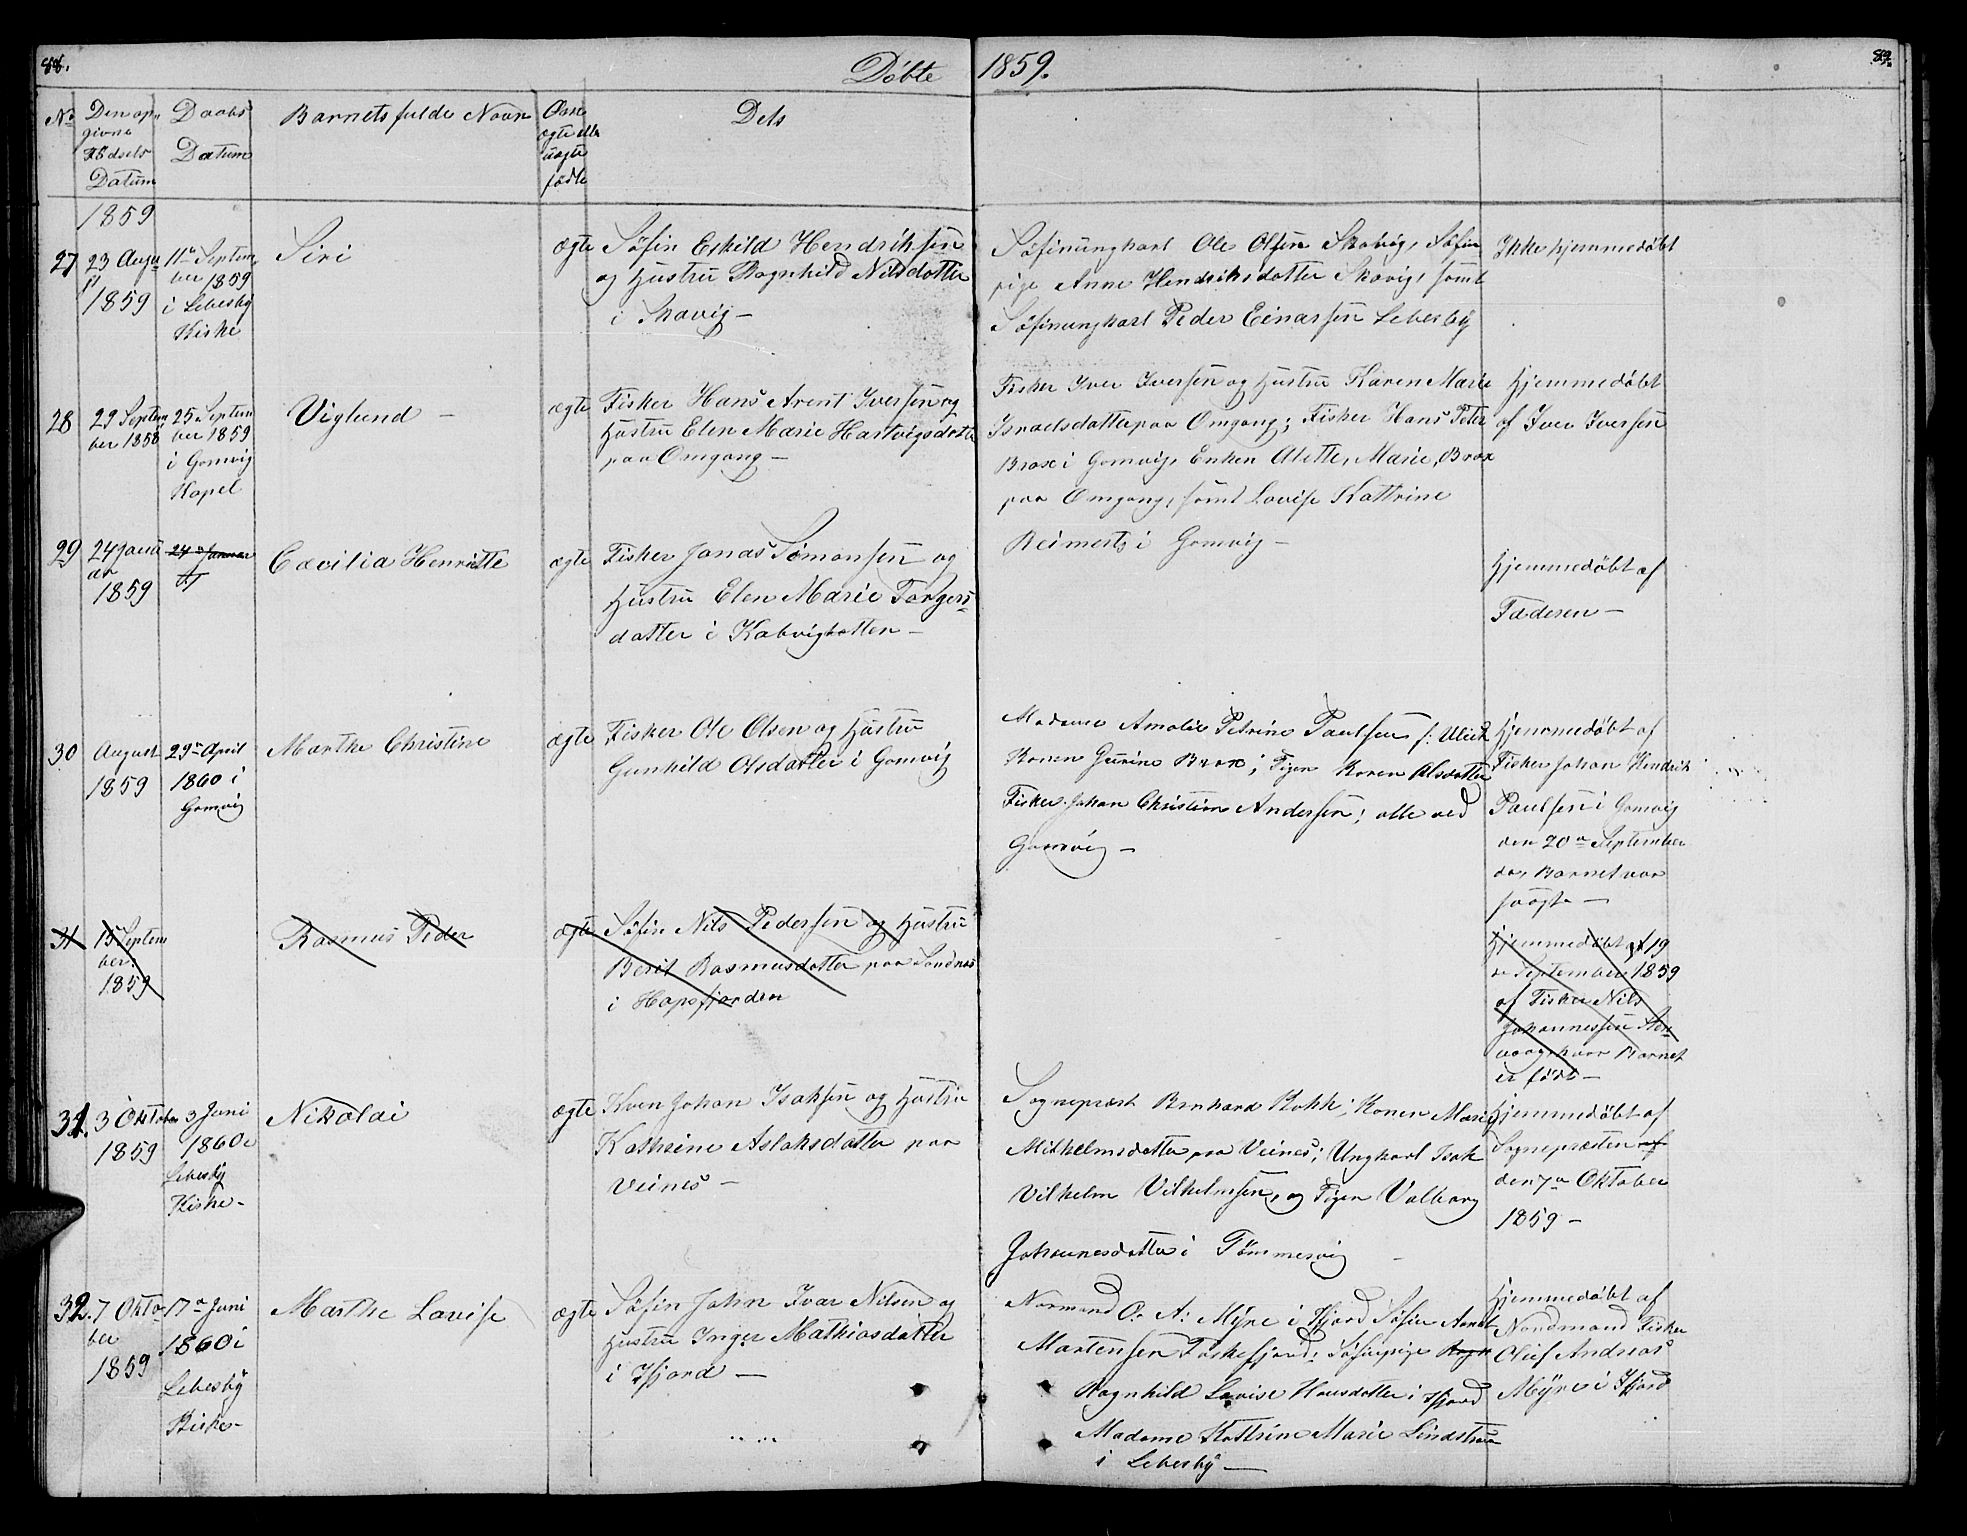 88.
Döbte 1859.
89.
No
Den op-
givne
Födsels
Datum
Daabs
Datum
Barnets fulde Navn
Om
ægte eller
uægte
födte
Dets
1859
27
23 Augu
st
1859
11te Septem
ber 1859
i Lebesby
Kirke
Siri
ægte
Söfin Eskild Hendriksen
og Hustru Ragnhild Nilsdatter
i Skavig—
Söfinungkarl Ole Olsen Skavig, Söfin
pige Anne Hendriksdatter Skavig, samt
Söfinungkarl Peder Einarsen Lebesby
Ikke hjemmedöbt
28
29 Septem
ber 1858
25 Septem
ber 1859
i Gamvig
Kapel
Viglund —
ægte
Fisker Hans Arent Iversen og
Hustru Elen Marie Hartvigsdatter
paa Omgang—
Fisker Iver Iversen og Hustru Karen Marie
Israelsdatter paa Omgang; Fisker Hans Peter
Brox i Gamvig, Enken Alette, Marie, Brox
paa Omgang, samt Lovise Kattrine
Reimerts i Gamvig—
Hjemmedöbt
af Iver Iversen
29
24 Janu
ar
1859
24de Januar
Cæcilia Henriette
ægte
Fisker Jonas Simonsen og
Hustru Elen Marie Torgers-
datter i Kobvigbotten—
Hjemmedöbt af
Faderen—
30
August
1859
29de April
1860 i
Gamvig
Marthe Christine
ægte
Fisker Ole Olsen og Hustru
Gunhild Olsdatter i Gamvig
Madame Amalie Petrine Paulsen f: Ulich
Konen Gurine Brox; Pigen Karen Olsdatter
Fisker Johan Christian Andersen; alle ved
Gamvig—
Hjemmedöbt af
Fisker Johan Hendrik
Paulsen i Gamvig
den 20de September
da Barnet var
svagt—
31
15 Septem
ber
1859
Rasmus Peder
ægte
Söfin Nils Pedersen og Hustru
Berit Rasmusdatter paa Sandnes
i Hopsfjorden
Hjemmedöbt 19
de September 1859
af Fisker Nils
Johannessen
hvor Barnet
er födt—
31.
3 Oktober
1859
3 Juni
1860 i
Lebesby
Kirke—
Nikolai
ægte
Kven Johan Isaksen og Hustru
Kathrine Aslaksdatter paa
Veines—
Sognepræst Bernhard Kokk; Konen Marie
Wilhelmsdatter paa Veines; Ungkarl Isak
Vilhelm Vilhelmsen, og Pigen Valborg
Johannesdatter i Tömmervig
Hjemmedöbt af
Sognepræsten af
den 7de Oktober
1859—
32.
7 Okto-
ber
1859
17de Juni
1860 i
Lebesby
Kirke—
Marthe Lovise
ægte
Söfin John Ivar Nilsen og
Hustru Inger Mathiasdatter
i Ifjord—
Normand O. A. Myre i Ifjord Söfin Arent
Martensen Torskefjord; Söfinpige
Ragnhild Lovise Hansdatter i Ifjord
Madame Kattrine Marie Lindström
i Lebesby—
Hjemmedöbt af
Nordmand Fisker
Oluf Andreas
Myre i Ifjord